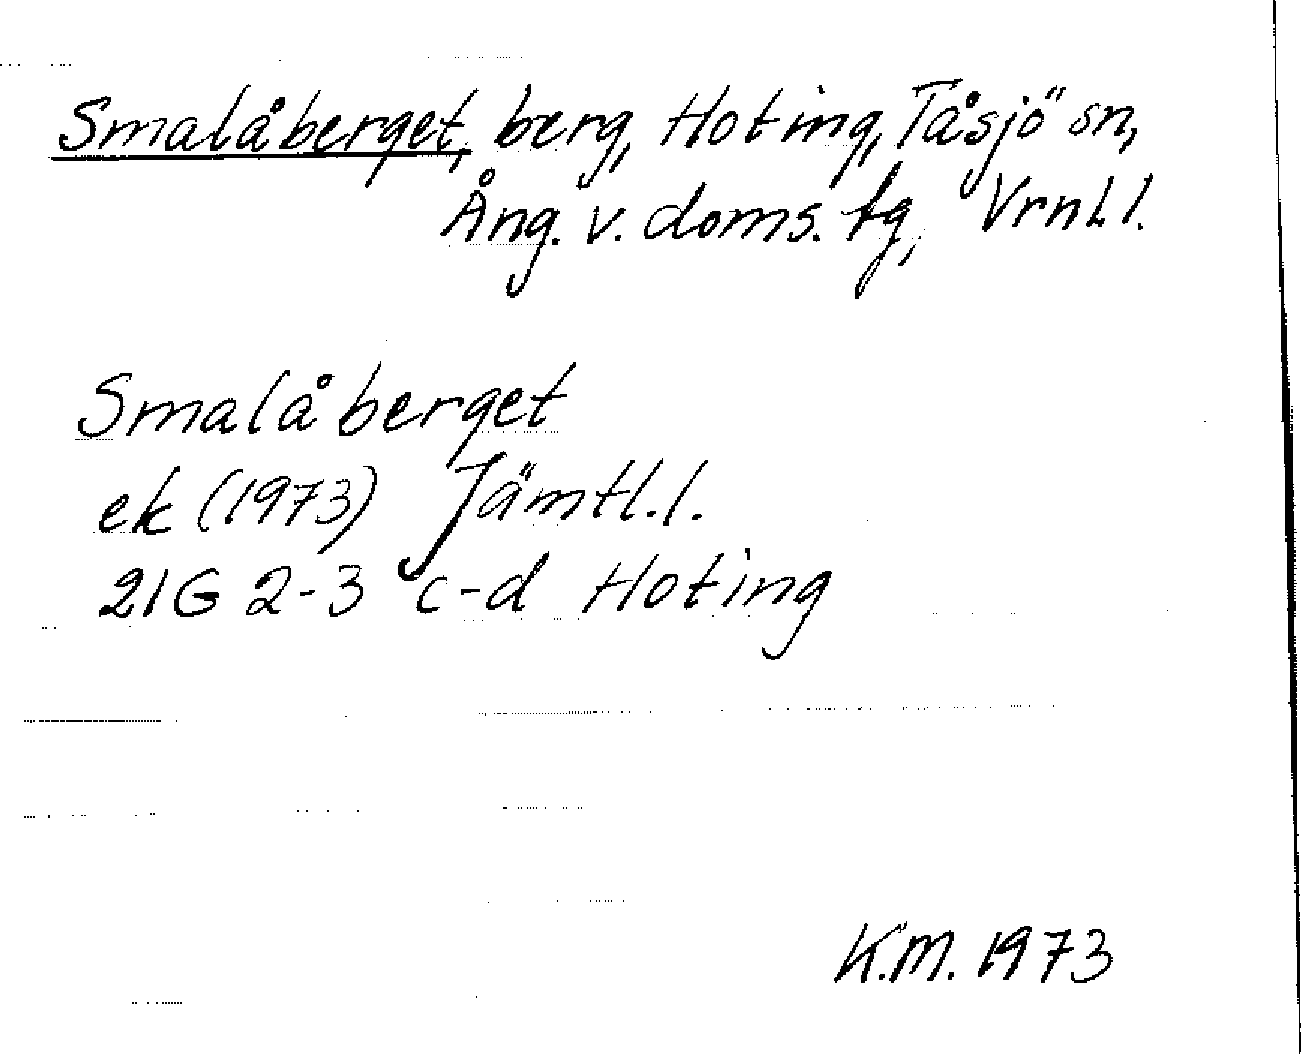 Smalåberget, berg, Hoting, Tåsjö sn,
Ång. v. doms. tg, Vrnl.l.
Smalåberget
ek (1973) Jämtl.l.
21G 2-3 c-d Hoting
K.M. 1973